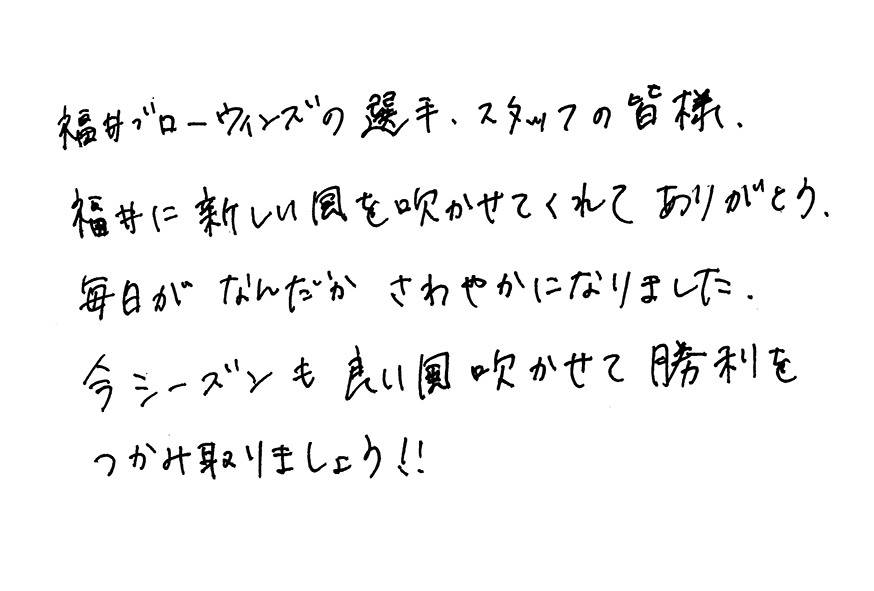 福井ブローウィンズの選手、スタッフの皆様、
福井に新しい風を吹かせてくれてありがとう、
毎日がなんだかさわやかになりました。
今シーズンも良い風吹かせて勝利を
つかみ取りましょう!!